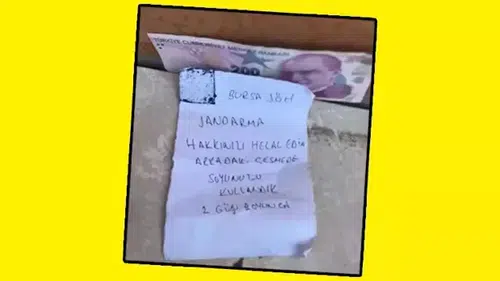 TÜRKİYE CUMHURİYET MERKEZ BANKASI
200
BURSA
JANDARMA
HAKKINIZI HELAL EDİN
ARKADAKİ ÇEŞMEDE
SUYUNUZU
KULLANDIK
2 GÜN BOYUNCA